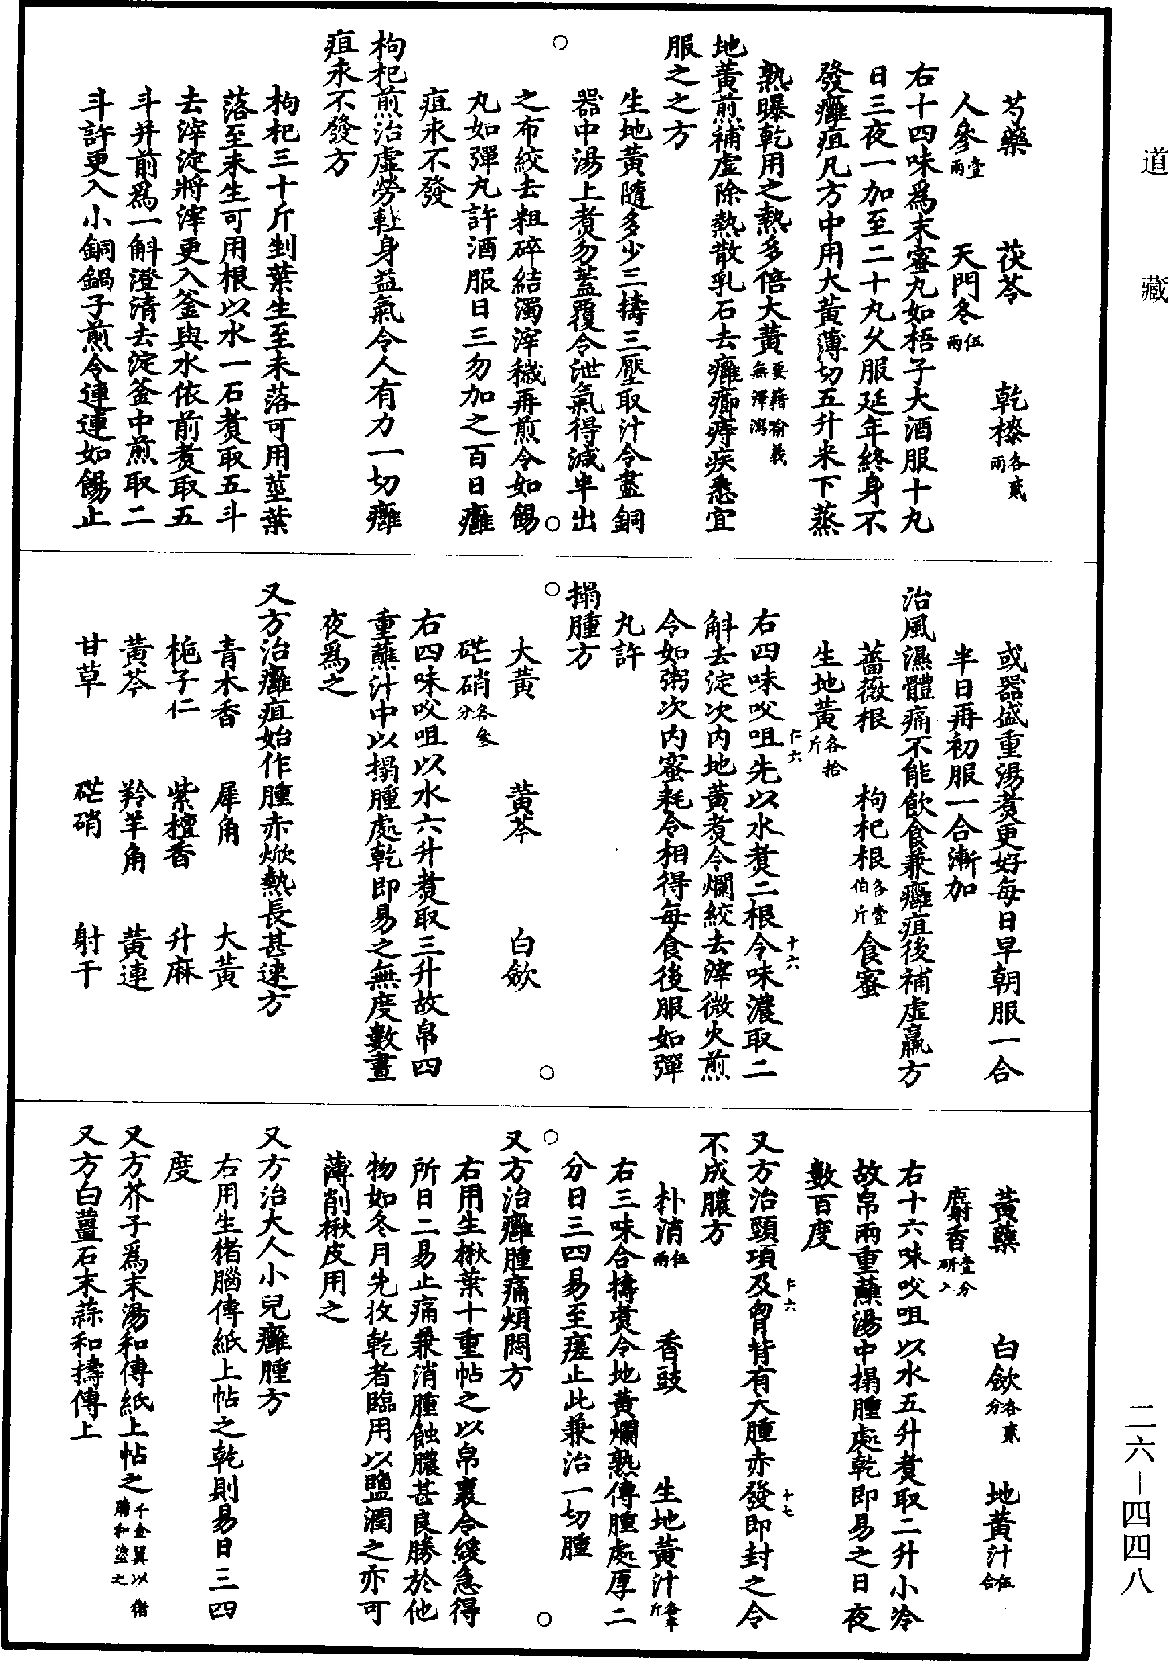 道 藏
二六—四四八
芍藥 茯苓 乾𣓨各貳兩
人參壹兩 天門冬伍兩
右十四味爲末蜜丸如梧子大酒服十丸
日三夜一加至二十丸久服延年終身不
發癰疽凡方中用大黃薄切五升米下蒸
熟曝乾用之熱多倍大黃要籍喻義無澤瀉
地黃煎補虛除熱散乳石去癰癤痔疾悉宜
服之之方
生地黃隨多少三擣三壓取汁令盡銅
器中湯上煑勿蓋覆令泄氣得減半出
之布絞去粗碎結濁滓穢再煎令如餳
丸如彈丸許酒服日三勿加之百日癰
疽永不發
枸杞煎治虛勞輕身益氣令人有力一切癰
疽永不發方
枸杞三十斤剉葉生至未落可用莖葉
落至未生可用根以水一石煑取五斗
去滓淀將滓更入釜與水依前煑取五
斗并前爲一斛澄清去淀釜中煎取二
斗許更入小銅鍋子煎令連連如餳止
或器盛重湯煑更好每日早朝服一合
半日再初服一合漸加
治風濕體痛不能飲食兼癰疽後補虛羸方
薔薇根 枸杞根各壹伯斤 食蜜
生地黃各拾斤
右四味㕮咀先以水煑二根令味濃取二
斛去淀次內地黃煑令爛絞去滓微火煎
令如粥次內蜜耗令相得每食後服如彈
丸許
搨腫方
大黃 黃芩 白斂
芒硝各叄分
右四味㕮咀以水六升煑取三升故帛四
重蘸汁中以搨腫處乾即易之無度數晝
夜爲之
又方治癰疽始作腫赤焮熱長甚速方
青木香 犀角 大黃
梔子仁 紫檀香 升麻
黃芩 羚羊角 黃連
甘草 芒硝 射干
黃蘗 白斂各貳分 地黃汁伍合
麝香壹分研入
右十六味㕮咀以水五升煑取二升小冷
故帛兩重蘸湯中搨腫處乾即易之日夜
數百度
又方治頸項及胷背有大腫赤發即封之令
不成膿方
朴消伍兩 香豉 生地黃汁各半斤
右三味合擣煑令地黃爛熟傅腫處厚二
分日三四易至瘥止此兼治一切腫
又方治癰腫痛煩悶方
右用生楸葉十重帖之以帛裹令緩急得
所日二易止痛兼消腫蝕膿甚良勝於他
物如冬月先收乾者臨用以鹽潤之亦可
薄削楸皮用之
又方治大人小兒癰腫方
右用生猪腦傅紙上帖之乾則易日三四
度
又方芥子爲末湯和傅紙上帖之千金翼以猪膽和塗之
又方白薑石末蒜和擣傅上